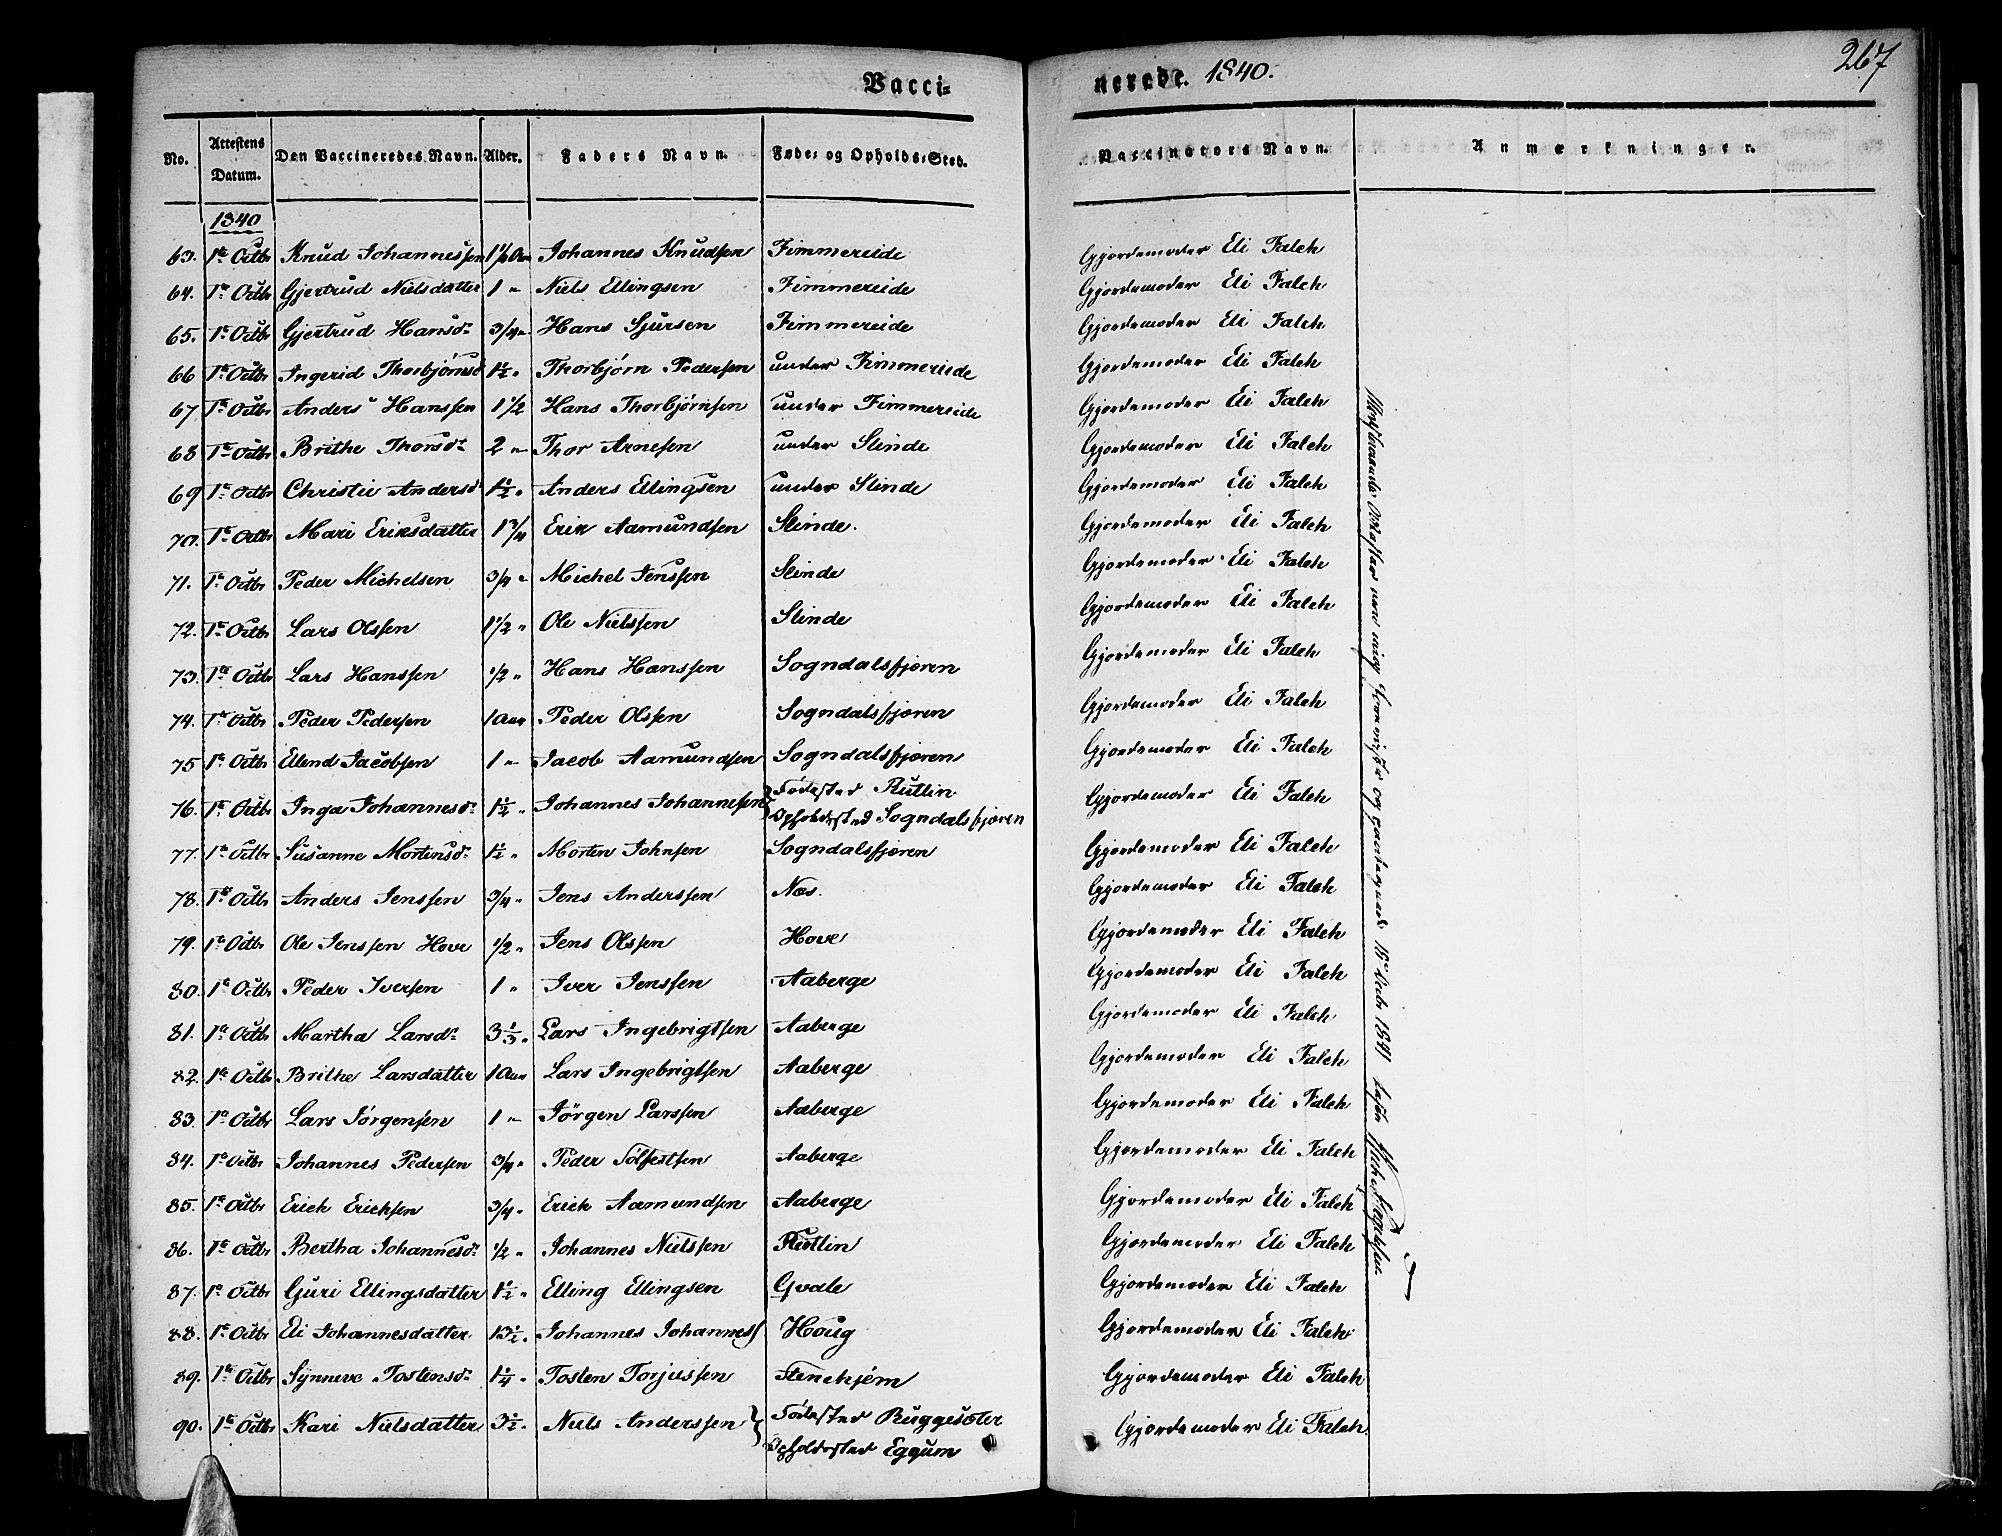 267
Vacci- nerede. 1840.
No. Attestens Datum. Den Vaccineredes Navn. Alder. Faders Navn. Føde- og Opholds-Sted. Vaccinators Navn. Anmærkninger.
1840
63. 1te Octbr Knud Johannessen 1 1/2 Aar Johannes Knudsen Fimmereide Gjordemoder Eli Falch
64. 1te Octbr Gjertrud Nielsdatter 1 " Niels Ellingsen Fimmereide Gjordemoder Eli Falch
65. 1te Octbr Gjertrud Hansdr 3/4 " Hans Sjursen Fimmereide Gjordemoder Eli Falch
66 1te Octbr Ingerid Thorbjörnsd 1 1/2 " Thorbjørn Pedersen under Fimmereide Gjordemoder Eli Falch
67 1te Octbr Anders Hanssen 1 1/2 Hans Thorbjørnsen under Fimmereide Gjordemoder Eli Falch
68 1te Octbr Brithe Thorsdr 2 " Thor Arnesen under Slinde Gjordemoder Eli Falch
69 1te Octbr Christie Andersdr 1 1/2 " Anders Ellingsen under Slinde Gjordemoder Eli Falch
70. 1te Octbr Mari Eriksdatter 1 3/4 Erik Aamundsen Slinde. Gjordemoder Eli Falch
71. 1te Octbr Peder Michelsen 3/4 " Michel Jenssen Slinde Gjordemoder Eli Falch
72. 1te Octbr Lars Olssen 1 1/2 " Ole Nielssen Slinde Gjordemoder Eli Falch
73. 1te Octbr Lars Hanssen 1/2 " Hans Hanssen Sogndalsfjæren Gjordemoder Eli Falch
74. 1te Octbr Peder Pedersen 1 Aar Peder Olssen Sogndalsfjæren Gjordemoder Eli Falch
75 1te Octbr Ellend Jacobsen 1 " Jacob Aamundsen Sogndalsfjæren Gjordemoder Eli Falch
76. 1te Octbr Inga Johannesdr 1 1/2 " Johannes Johannesen } Fødested Rutlin Gjordemoder Eli Falch
Opholdssted Sogndalsfjæren
77. 1te Octbr Susanne Mortensdr 1 1/2 " Morten Johnsen Sogndalsfjæren Gjordemoder Eli Falch
78. 1te Octbr Anders Jenssen 3/4 " Jens Anderssen Næs. Gjordemoder Eli Falch
79. 1te Octbr Ole Jenssen Hove 1/2 " Jens Olssen Hove Gjordemoder Eli Falch
80. 1te Octbr Peder Iversen 1 " Iver Jenssen Aaberge Gjordemoder Eli Falch
81. 1te Octbr Martha Larsdr 3 1/3 " Lars Ingebrigtsen Aaberge Gjordemoder Eli Falch
82. 1te Octbr Brithe Larsdatter 1 Aar Lars Ingebrigtsen Aaberge Gjordemoder Eli Falch
83. 1te Octbr Lars Jørgensen 1 " Jörgen Larssen Aaberge Gjordemoder Eli Falch
84. 1te Octbr Johannes Pedersen 3/4 " Peder Solfestsen Aaberge Gjordemoder Eli Falch
85. 1te Octbr Erich Erichsen 3/4 " Erick Aamundsen Aaberge Gjordemoder Eli Falch
86. 1te Octbr Bertha Johannesdr 1/2 " Johannes Nielssen Rutlin Gjordemoder Eli Falch
87. 1te Octbr Guri Ellingsdatter 1 1/2 " Elling Ellingsen Qvale Gjordemoder Eli Falch
88. 1te Octbr Eli Johannesdatter 13 1/2 " Johannes Johanness Houg Gjordemoder Eli Falch
89. 1te Octbr Synneve Tostensdr 1 1/4 " Tosten Torjussen Stenehjem Gjordemoder Eli Falch
90. 1te Octbr Kari Nielsdatter 3 1/2 " Niels Anderssen } Fødested Ruggesæter Gjordemoder Eli Falch
Opholdssted Eggum
Attester ved mig og 1841